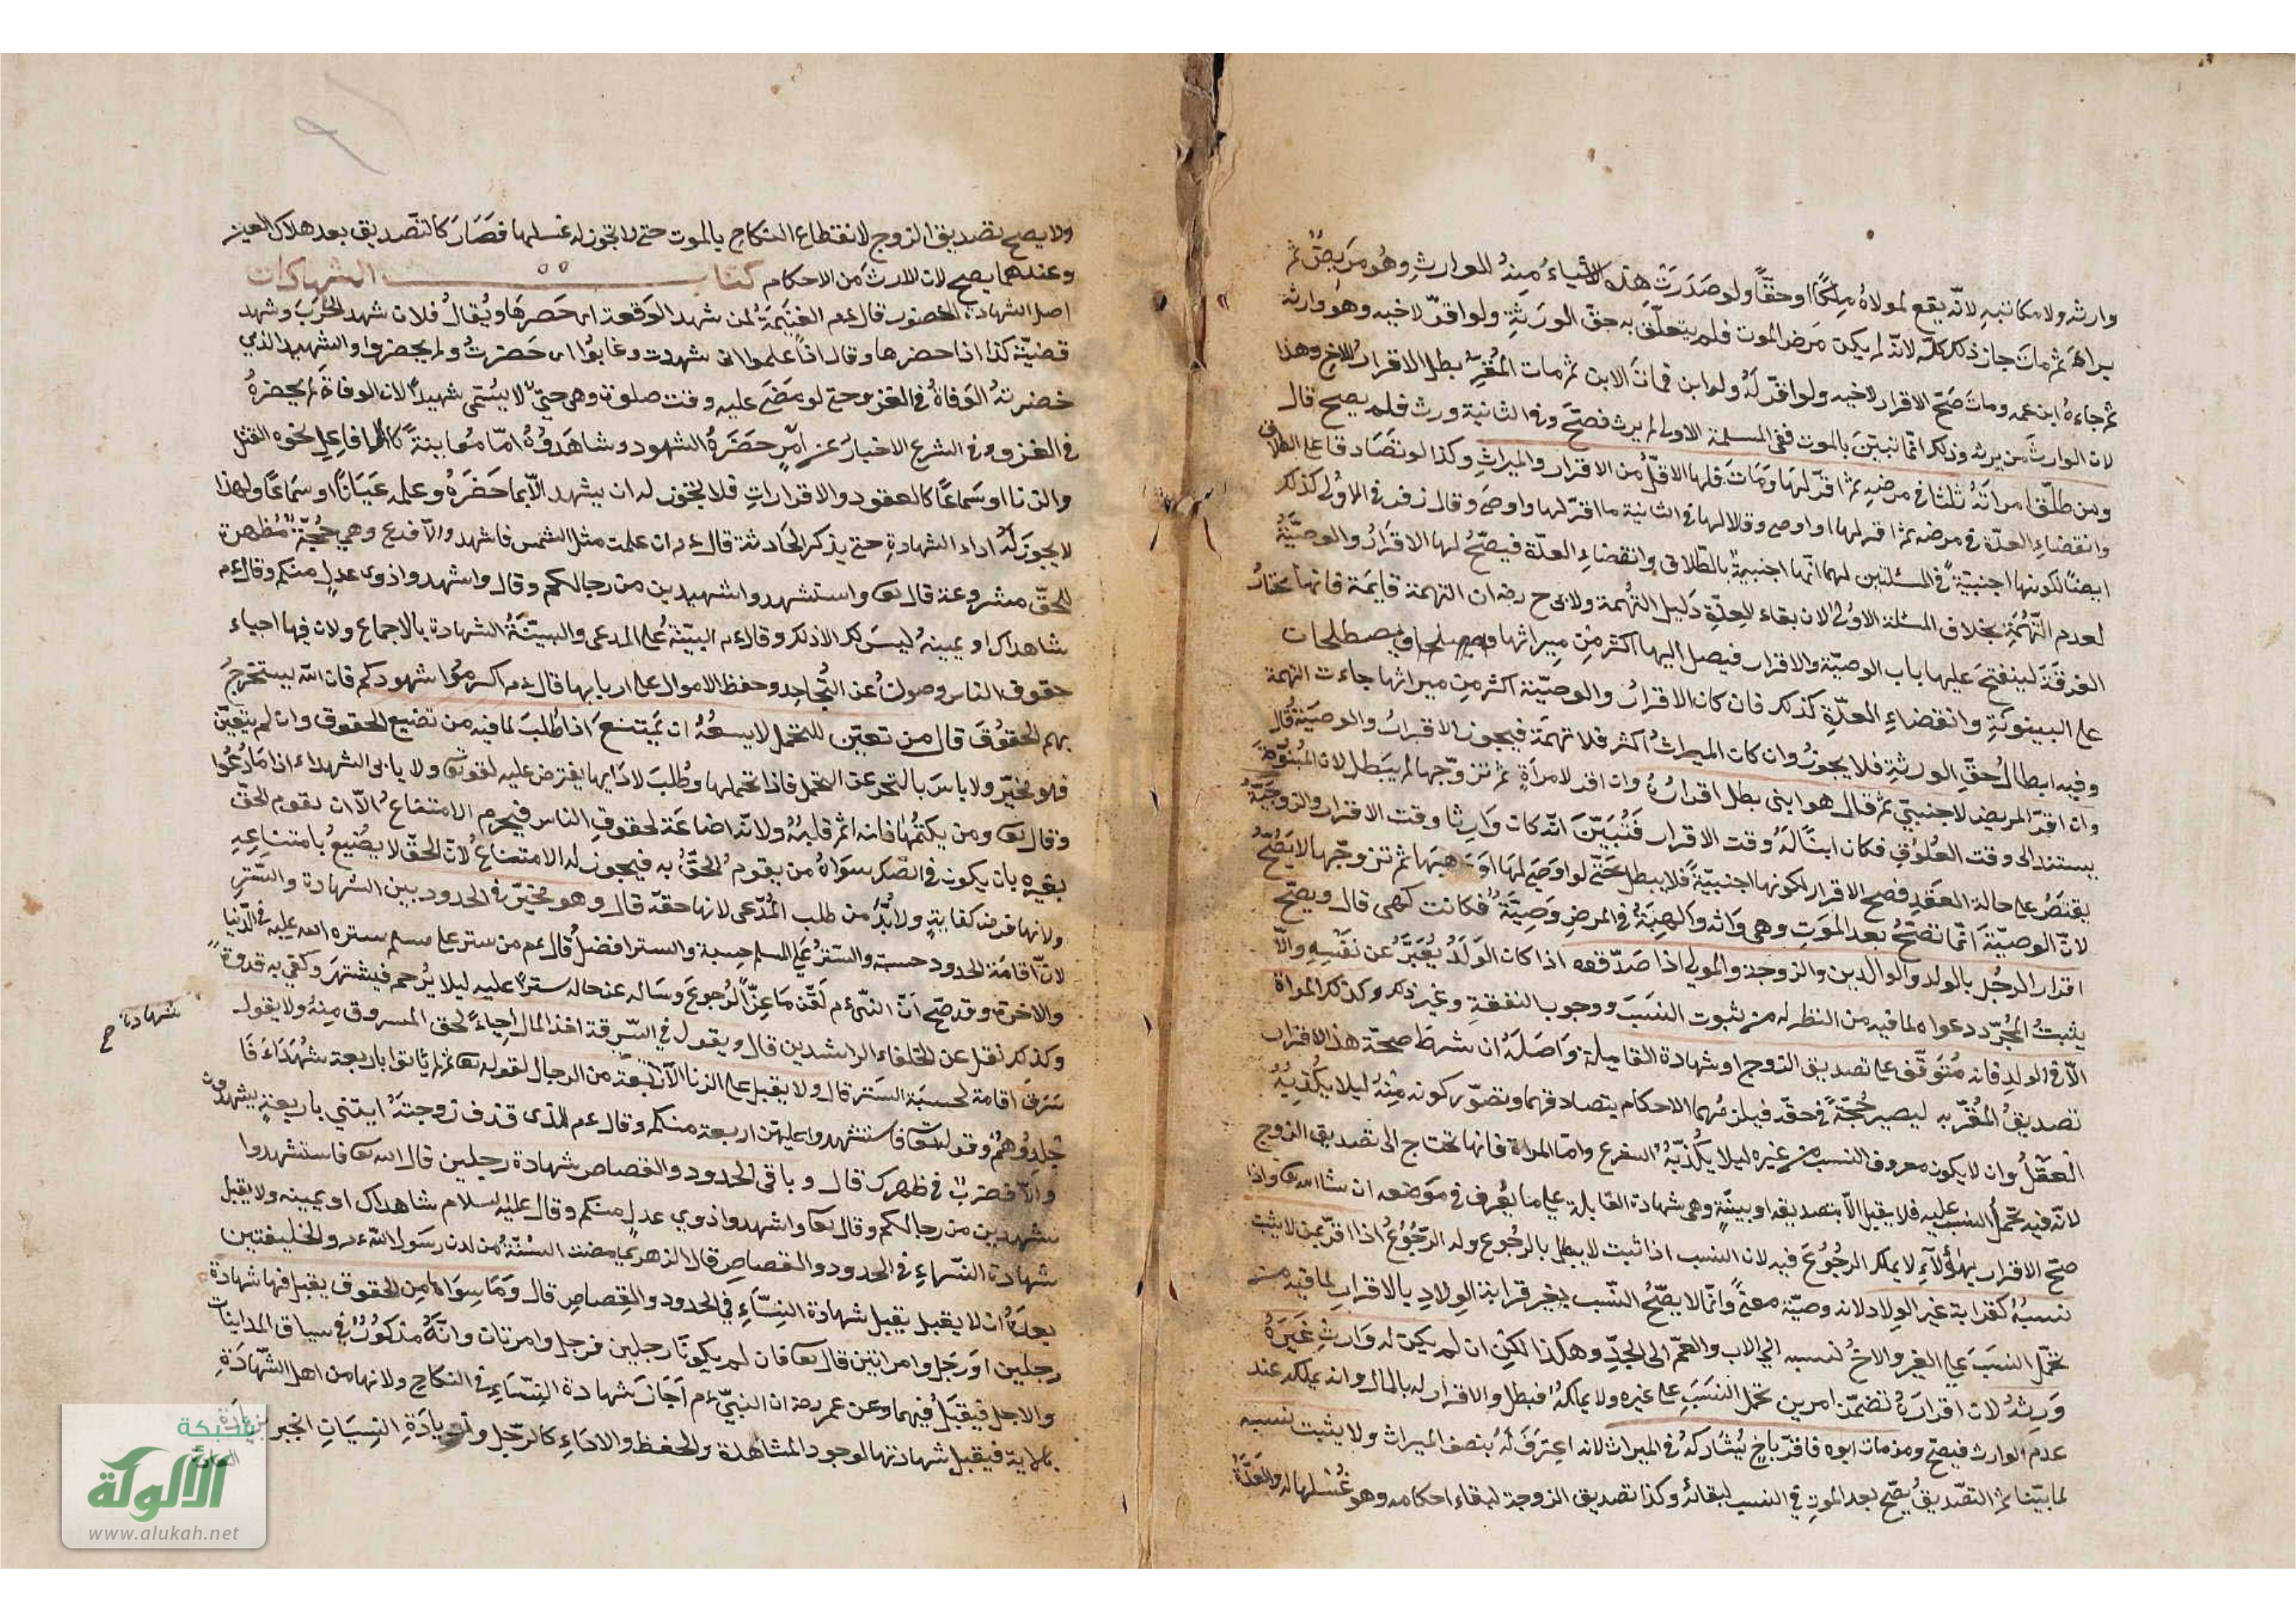 وارثه ولا مكاتبه لانه يقع لمولاه ملكا او حقا ولو صدرت هذه الاشياء منه للوارث وهو مريض ثم
برأ ثم مات جاز ذلك كله لانه لم يكن مرض الموت فلم يتعلق به حق الورثة ولو اقر لاخيه وهو وارثه
ثم جاءه ابن عمه ومات صح الاقرار لاخيه ولو اقر له ولو ابن فمات الابن ثم مات المقر بطل الاقرار للاخ وهذا
لان الوارث من يرثه وذلك انما تبين بالموت ففي المسئلة الاولى لم يرث فصح وفي الثانية ورث فلم يصح قال
ومن طلق امراته ثلثا في مرضه ثم اقر لها ومات فلها الاقل من الاقرار والميراث وكذا لو تصادقا على الطلاق
وانقضاء العدة في مرضه ثم اقر لها او اوصى وقالا لها في الثانية ما اقر لها واوصى وقال زفر في الاولى كذلك
ايضا لكونها اجنبية في المسئلتين لهما انها اجنبية بالطلاق وانقضاء العدة فيصح لها الاقرار والوصية
لعدم التهمة بخلاف المسئلة الاولى لان بقاء العدة دليل التهمة ولابي ح رضه ان التهمة قايمة فانها تختار
الفرقة لينفتح عليها باب الوصية والاقرار فيصل اليها اكثر من ميراثها ويصطلحان
على البينونة وانقضاء العدة كذلك فان كان الاقرار والوصية اكثر من ميراثها جاءت التهمة
وفيه ابطال حق الورثة فلا يجوز وان كان الميراث اكثر فلا تهمة فيجوز الاقرار والوصية قال
وان اقر المريض لاجنبي ثم قال هو ابني بطل اقراره وان اقر لامراة ثم تزوجها لم يبطل لان البنوة
يستند الى وقت العلوق فكان ابنا له وقت الاقرار فتبين انه كان وارثا وقت الاقرار والزوجية
يقتصر على حالة العقد فصح الاقرار لكونها اجنبية فلا يبطل حتى لو اوصى لها او وهبها ثم تزوجها لا يصح
لان الوصية انما تصح بعد الموت وهي وارثه والهبة في المرض وصية فكانت كهي قال ويصح
اقرار الرجل بالولد والوالدين والزوجة والمولى اذا صدقوه اذا كان الولد يعبر عن نفسه والا
يثبت بمجرد دعواه لما فيه من النظر له من ثبوت النسب ووجوب النفقة وغير ذلك وكذلك المراة
الا في الولد فانه متوقف على تصديق الزوج او شهادة القابلة واصله ان شرط صحة هذا الاقرار
تصديق المقر به ليصير حجة في حقه فيلزمهما الاحكام بتصادقهما وتصور كونه منه ليلا يكذبه
العقل وان لا يكون معروف النسب من غيره ليلا يكذبه الشرع واما المراة فانها تحتاج الى تصديق الزوج
لانه فيه تحمل النسب عليه فلا يقبل الا بتصديقه او بينة وهي شهادة القابلة على ما يعرف في موضعه ان شا الله تعا واذا
صح الاقرار بهؤلاء لا يملك الرجوع فيه لان النسب اذا ثبت لا يبطل بالرجوع وله الرجوع اذا اقر بمن لا يثبت
نسبه كقرابة غير الولاد لانه وصية معنى وانما لا يصح النسب بغير قرابة الولاد بالاقرار لما فيه من
تحمل النسب على الغير والاخ لنسبه الى الاب والعم الى الجد وهكذا لكن ان لم يكن له وارث غيره
ورثه لان اقراره تضمن امرين تحمل النسب على غيره ولا يملكه فبطل والاقرار له بالمال وانه يملكه عند
عدم الوارث فيصح ومن مات ابوه فاقر باخ يشاركه في الميراث لانه اعترف له بنصف الميراث ولا يثبت نسبه
لما بينا ثم التصديق يصح بعد الموت في النسب لبقائه وكذا تصديق الزوجة لبقاء احكامه وهو غسلها له والعدة
ولا يصح تصديق الزوج لانقطاع النكاح بالموت حتى لا يجوز له غسلها فصار كالتصديق بعد هلاك العين
وعندهما يصح لان الارث من الاحكام كتاب الشهادات
اصل الشهادة الحضور قال عم الغنيمة لمن شهد الوقعة اي حضرها ويقال فلان شهد الحرب وشهد
قضية كذا اذا حضرها وقال اذا علموا اني شهدت وغابوا اي حضرت ولم يحضروا والشهيد الذي
حضرته الوفاة في الغزو حتى لو مضى عليه وقت صلوة وهي حي لا يسمى شهيدا لان الوفاة لم يحضره
في الغزو وفي الشرع الاخبار عن امر حضره الشهود وشاهدوه اما معاينة كالافاعيل نحوه القتل
والزنا او سماعا كالعقود والاقرارات فلا يجوز له ان يشهد الا بما حضره وعلمه عيانا او سماعا ولهذا
لا يجوز له اداء الشهادة حتى يذكر الحادثة قال عم ان علمت مثل الشمس فاشهد والا فدع وهي حجة مظهرة
للحق مشروعة قال تعا واستشهدوا شهيدين من رجالكم وقال واشهدوا ذوى عدل منكم وقال عم
شاهداك او يمينه ليس لك الا ذلك وقال عم البينة على المدعى والبينة الشهادة بالاجماع ولان فيها احياء
حقوق الناس وصون عن التجاحد وحفظ الاموال على اربابها قال عم اكرموا شهودكم فان الله يستخرج
بهم الحقوق قال من تعين للتحمل لا يسعه ان يمتنع اذا طلب لما فيه من تضييع الحقوق وان لم يتعين
فهو مخير ولا باس بالتحرز عن التحمل فاذا تحملها وطلب لادايها يفترض عليه لقوله تعا ولا يابى الشهداء اذا ما دعوا
وقال تعا ومن يكتمها فانه اثم قلبه ولانه اضاعة لحقوق الناس فيحرم الامتناع الا ان يقوم الحق
بغيره بان يكون في الصك سواه من يقوم الحق به فيجوز له الامتناع لان الحق لا يضيع بامتناعه
ولانها فرض كفاية ولا بد من طلب المدعى لانها حقه قال وهو مخير في الحدود بين الشهادة والستر
لان اقامة الحدود حسبة والستر على المسلم حسبة والستر افضل قال عم من ستر على مسلم ستره الله عليه في الدنيا
والاخرة وقد صح ان النبي عم لقن ماعزا الرجوع وساله عن حاله سترا عليه ليلا يرحم فيشتهر وكفى به قدوة
وكذلك نقل عن الخلفاء الراشدين قال ويقول في السرقة اخذ المال احياء لحق المسروق منه ولا يقول
سرق اقامة لحسبة الستر قال ولا يقبل على الزنا الا اربعة من الرجال لقوله تعا ثم لم ياتوا باربعة شهداء فا
جلدوهم وقوله تعا فاستشهدوا عليهن اربعة منكم وقال عم للذى قذف زوجته ايتني باربعة يشهدون
والا فضرب في ظهرك قال وباقي الحدود والقصاص شهادة رجلين قال الله تعا فاستشهدوا
شهيدين من رجالكم وقال تعا واشهدوا ذوي عدل منكم وقال عليه السلام شاهداك او يمينه ولا يقبل
شهادة النساء في الحدود والقصاص قال الزهري مضت السنة من لدن رسول الله عم والخليفتين
بعده ان لا يقبل يقبل شهادة النساء في الحدود والقصاص قال وما سواها من الحقوق يقبل فيها شهادة
رجلين او رجل وامراتين قال تعا فان لم يكونا رجلين فرجل وامرتان وانه مذكور في سياق المداينات
والاجل فيقبل فيهما وعن عمر رضه ان النبي عم اجاز شهادة النساء في النكاح ولانها من اهل الشهادة
فيقبل شهادتها لوجود المشاهدة والحفظ والاداء كالرجل وزيادة النسيان الخبر
شهادة صح
شبكة
الألوكة
www.alukah.net